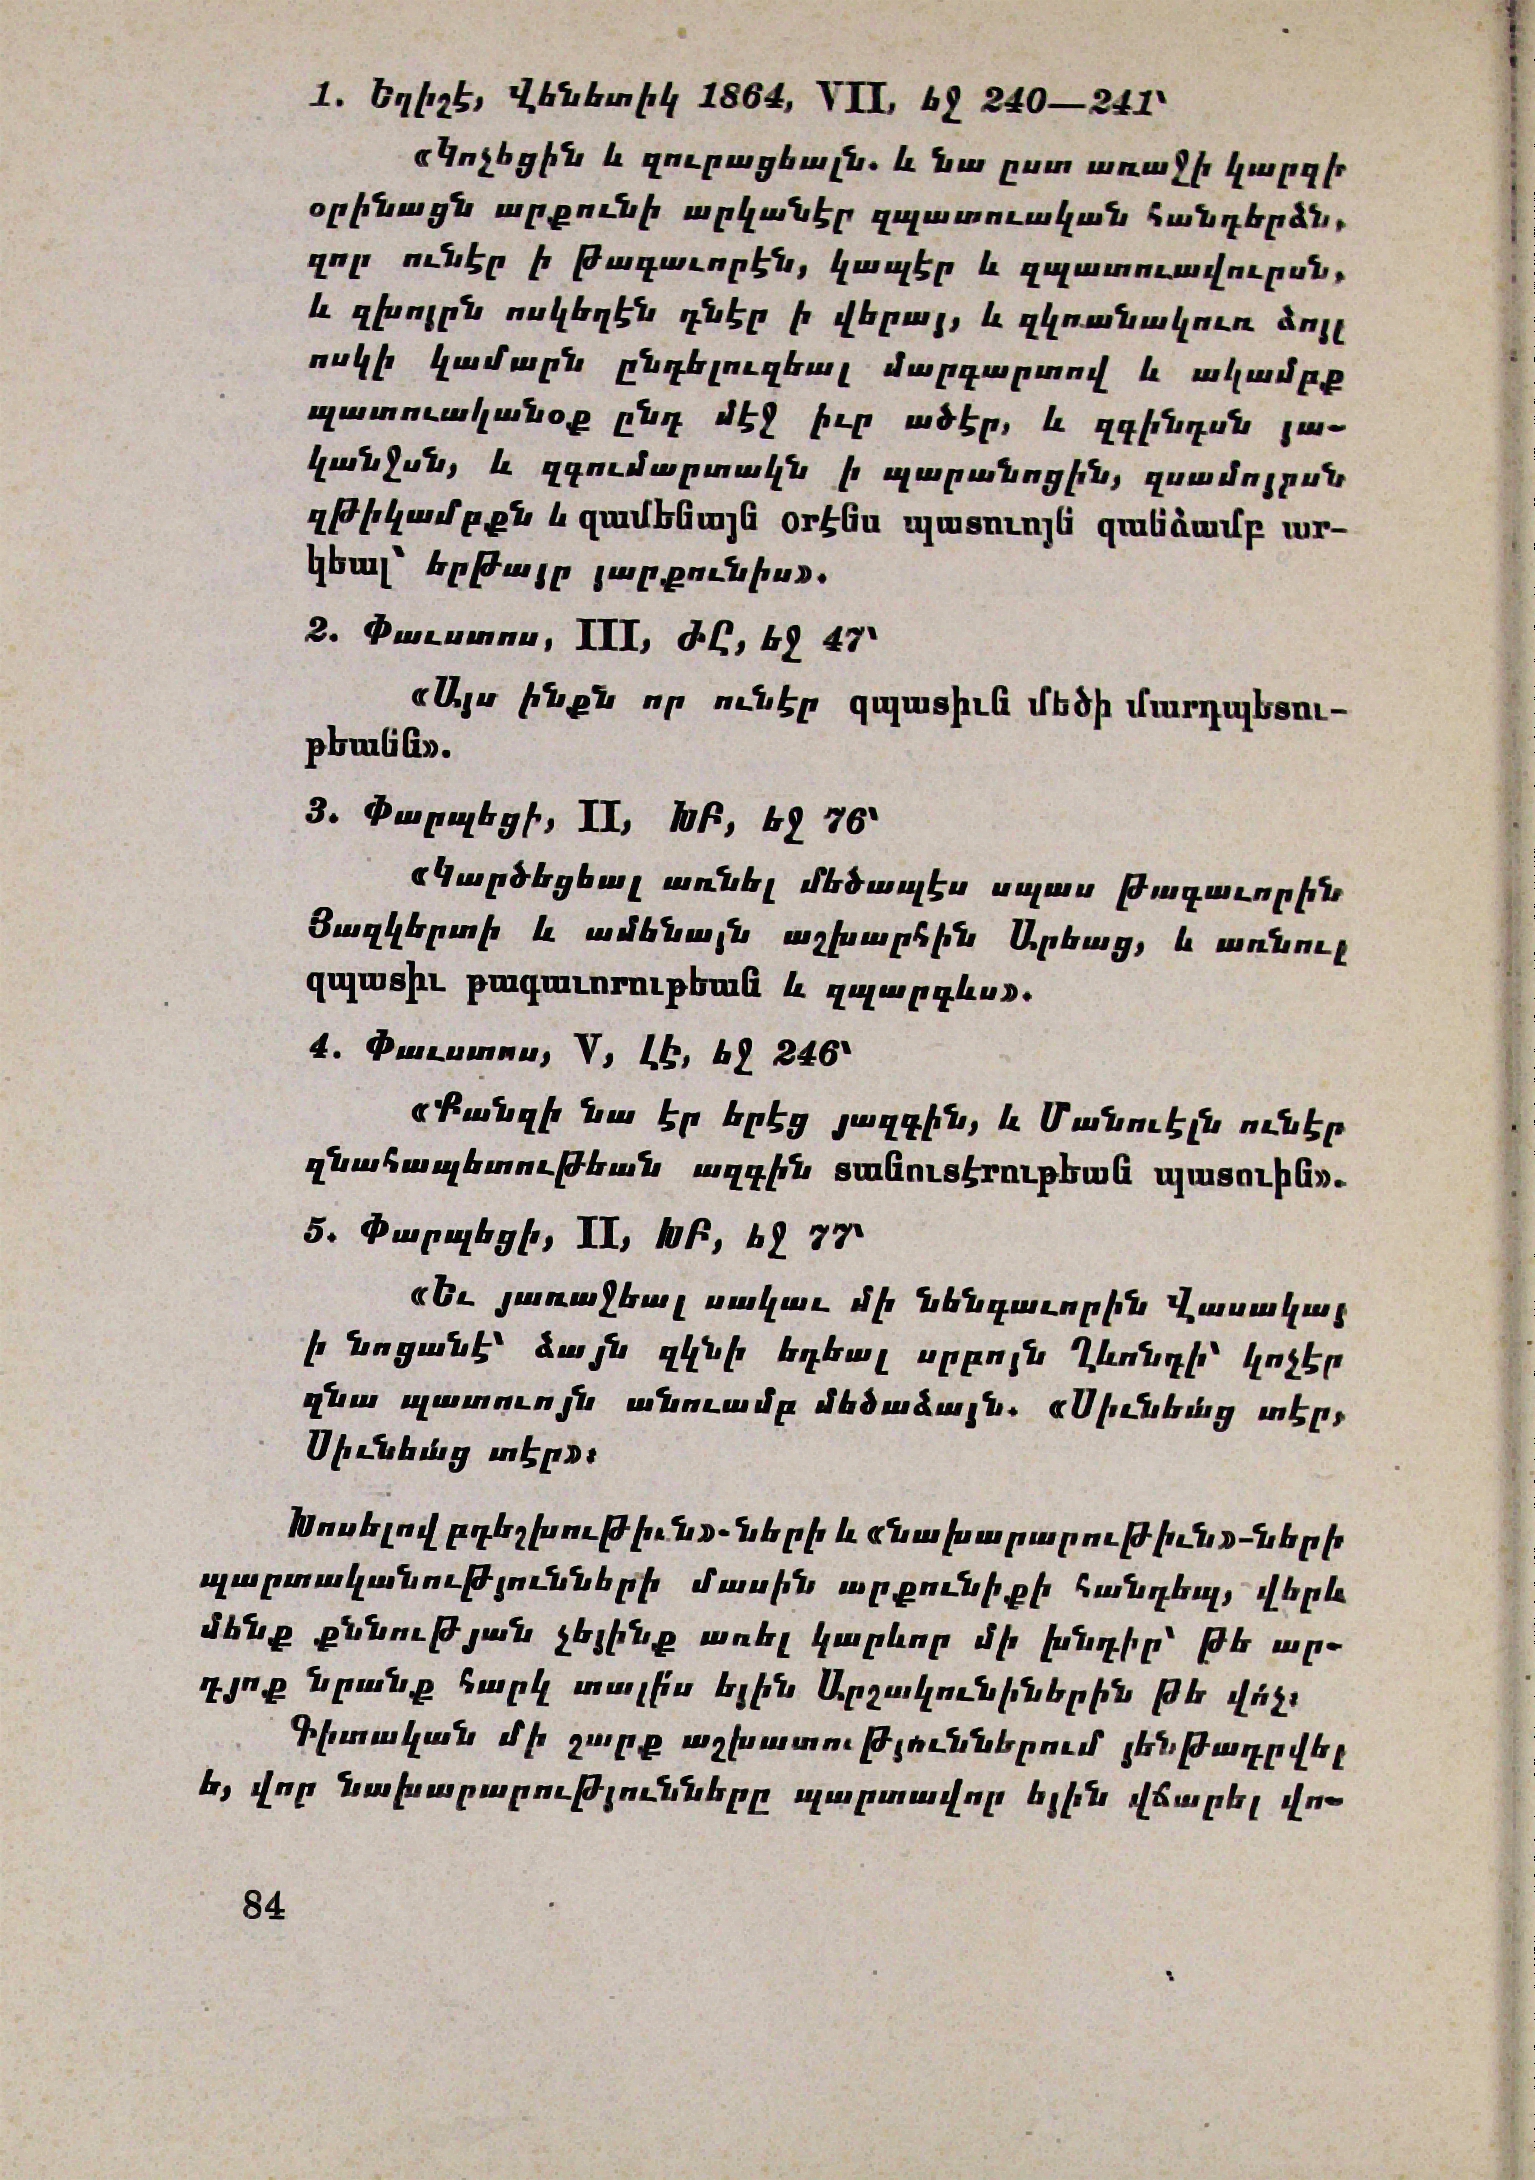 1. Եղիշէ, Վենետիկ 1864, VII, եջ 240—241՝
«Կոչեցին և զուրացեալն. և նա ըստ առաջի կարգի
օրինացն արքունի արկանէր զպատուական հանդերձն,
զոր ունէր ի թագաւորէն, կապէր և զպատուավուրսն,
և զխոյրն ոսկեղէն դնէր ի վերայ, և զկռանակուռ ձոյլ
ոսկի կամարն ընդելուզեալ մարգարտով և ակամբք
պատուականօք ընդ մէջ իւր ածէր, և զգինդսն յա-
կանջսն, և զգումարտակն ի պարանոցին, զսամոյրսն
զթիկամբքն և զամենայն օրէնս պատուոյն զանձամբ ար-
կեալ՝ երթայր յարքունիս».
2. Փաւստոս, III, ԺԸ, եջ 47՝
«Այս ինքն որ ունէր զպատիւն մեծի մարդպետու-
թեանն».
3. Փարպեցի, II, ԽԲ, եջ 76՝
«Կարծեցեալ առնել մեծապէս սպաս թագաւորին
Յազկերտի և ամենայն աշխարհին Արեաց, և առնուլ
զպատիւ թագաւորութեան և զպարգևս».
4. Փաւստոս, V, ԼԷ, եջ 246՝
«Քանզի նա էր երէց յազգին, և Մանուէլն ունէր
զնահապետութեան ազգին տանուտէրութեան պատուին».
5. Փարպեցի, II, ԽԲ, եջ 77՝
«Եւ յառաջեալ սակաւ մի նենգաւորին Վասակայ
ի նոցանէ՝ ձայն զկնի եդեալ սրբոյն Ղևոնդի՝ կոչէր
զնա պատուոյն անուամբ մեծաձայն. «Սիւնեա՛ց տէր,
Սիւնեա՛ց տէր»։
Խոսելով բդեշխութիւն»-ների և «նախարարութիւն»-ների
պարտականությունների մասին արքունիքի հանդեպ, վերև
մենք քննության չեյինք առել կարևոր մի խնդիր՝ թե ար-
դյոք նրանք հարկ տալի՞ս եյին Արշակունիներին թե վո՛չ։
Գիտական մի շարք աշխատություններում յենթադրվել
ե, վոր նախարարությունները պարտավոր եյին վճարել վո-
84